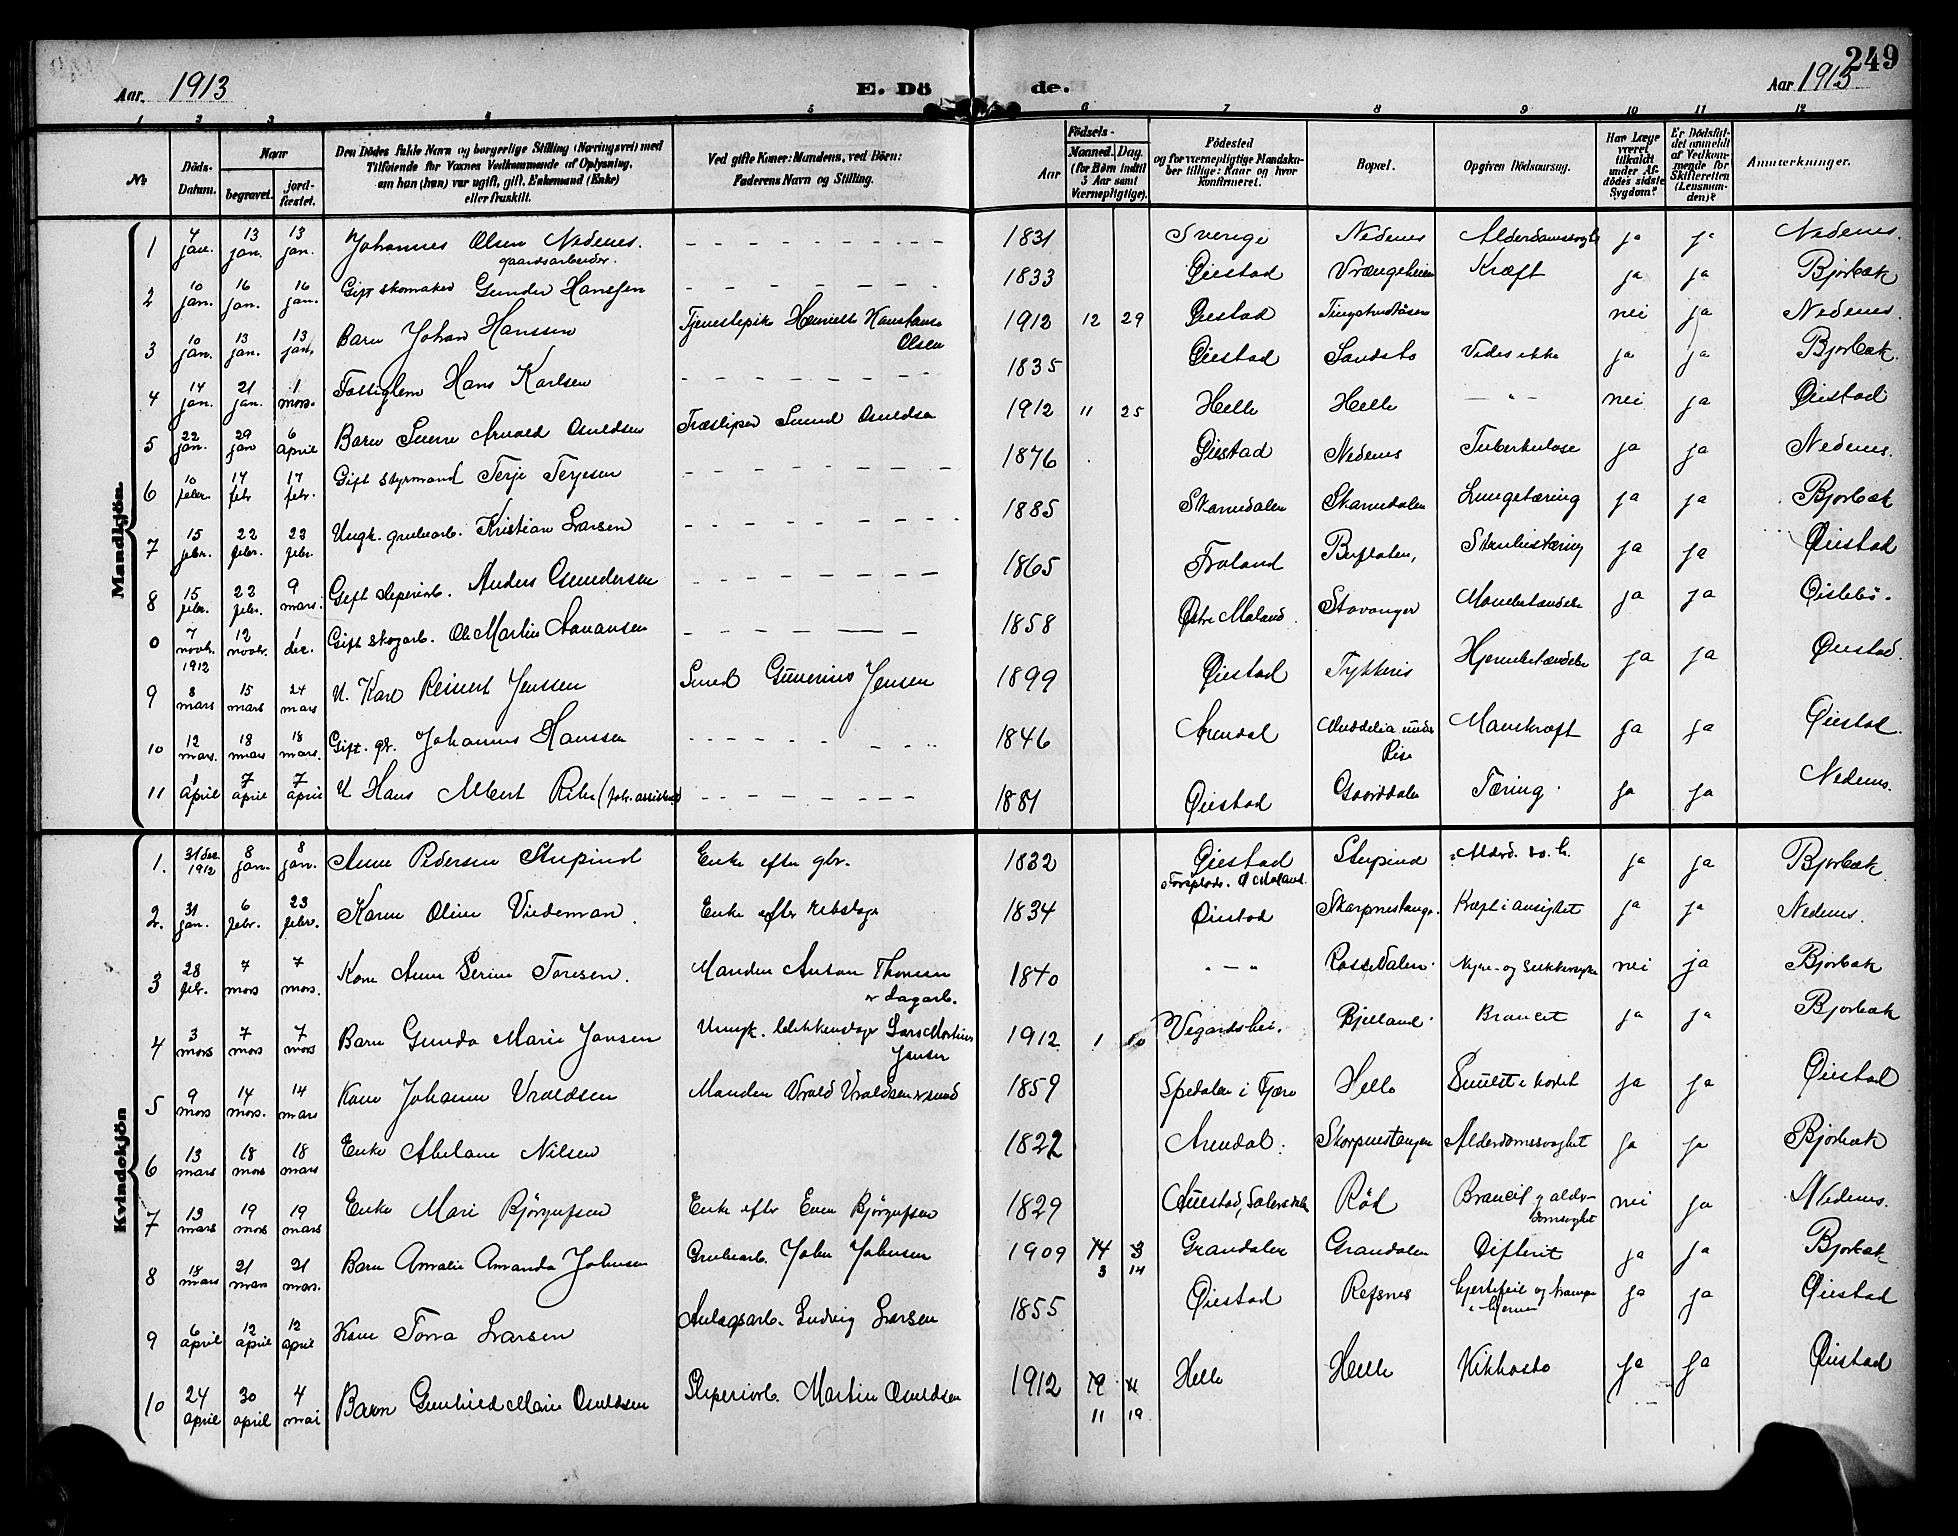 249
Aar 1913 E. Dö de. Aar 1913
1 2 3 4 5 6 7 8 9 10 11 12
No. Döds-Datum. Naar begravet. jord-fæstet. Den Dödes fulde Navn og borgerlige Stilling (Næringsvei) med Tilföiende for Voxnes Vedkommende af Oplysning, om han (hun) var ugift, gift, Enkemand (Enke) eller fraskilt. Ved gifte Koner: Mandens, ved Börn: Faderens Navn og Stilling. Födsels- Aar Maaned. Dag. (for Börn indtil 5 Aar samt Værnepligtige). Födested og for værnepligtige Mandskaber tillige: Naar og hvor konfirmeret. Bopæl. Opgiven Dödsaarsag. Har Læge været tilkaldt under Afdödes sidste Sygdom? Er Dödsfaldet anmeldt af Vedkommende for Skifteretten (Lensmanden)? Anmerkninger.
Mandkjön.
1 4 jan. 13 jan. 13 jan. Johannes Olsen Nedenes. gaardsarbeider. 1831 Sverige Nedenes ja ja Nedenes.
2 10 jan. 16 jan. 16 jan. Gift skomaker Gunder Hanssen 1833 Øiestad Kræft ja ja Bjorbæk
3 10 jan. 13 jan. 13 jan. Barn Johan Hanssen Tjenestepike Olsen 1912 12 29 Øiestad nei ja Nedenes.
4 14 jan. 21 jan. 1 mars. Fattiglem Hans Karlsen 1835 Øiestad Vides ikke ja ja Bjorbæk.
5 22 jan. 29 jan 6 april Barn Osuldsen Træsliper Osuldsen 1912 11 25 Helle Helle — " — nei ja Øiestad
6 10 febr. 14 febr 17 febr. Gift styrmand Terje Terjesen 1876 Øiestad Nedenes Tuberkulose ja ja Nedenes.
7 15 febr. 22 febr. 23 febr. Ungk. grubearb. Kristian Larsen 1885 Lungetæring ja ja Bjorbæk
8 15 febr. 22 febr. 9 mars. Gift sliperiarb. Anders 1865 Froland ja ja Øiestad
0 7 novbr. 1912 12 novbr. 1 dec. Gift skogarb. Ole Martin Aanansen 1858 Østre Moland. Stavanger ja ja Øislebø.
9 8 mars 15 mars 24 mars U. Karl Reinert Jenssen Smed Jensen 1899 Øiestad Hjernebetændelse ja ja Øiestad.
10 12 mars. 18 mars 18 mars. Gift. gbr. Johannes Hanssen 1846 Arendal under Rise Mavekræft ja ja Øiestad.
11 1 april 7 april 7 april U Hans Albert 1881 Øiestad Tæring. ja ja Nedenes.
Kvindekjön
1. 31 dec. 1912 8 jan. 8 jan. Anne Pedersen Stupind Enke efter gbr. 1832 Øiestad Stupind ja ja Bjorbæk
2. 31 jan. 6 febr. 23 febr. Karen Oline Viedeman. Enke efter rebslager 1834 Øiestad Kræft i ansigtet ja ja Nedenes.
3 28 febr. 7 mars 7 mars. Kone Anne Serine Toresen. Manden Anton Thoresen er dagarb. 1840 " — " Rossedalen nei ja Bjorbæk
4 3 mars 7 mars 7 mars Barn Gunda Marie Jansen Lars Martinus Jansen 1912 1 10 Vegardshei. Bjelland. Broncit ja ja Bjorbæk
5 9 mars 14 mars. 14 mars Kone Johanne Vraldsen Manden Vrald Vraldsen er smed 1859 Spedalen i Fjære Helle ja ja Øiestad
6 13 mars 18 mars 18 mars Enke Abelane Nilsen 1822 Arendal. Alderdomssvaghet ja ja Bjorbæk
7 13 mars 19 mars 19 mars Enke Mari Bjørgufsen Enke efter Even Bjørgufsen 1829 Rød Broncit og alderdomssvaghet nei ja Nedenes.
8 18 mars 21 mars 21 mars. Barn Amalie Amanda Johnsen Grubearb. John Johnsen 1909 14 3 3 14 Grandalen Grandalen Difterit ja ja Bjorbæk
9 6 april 12 april 12 april Kone Torra Larsen Anlægsarb. Ludvig Larsen 1855 Øiestad Refsnes Hjertefeil og krampe i hjernen ja ja Øiestad
10 24 april 30 april 4 mai Barn Gunhild Marie Osuldsen Sliperiarb. Martin Osuldsen 1912 19 11 11 19 Helle Helle Kikhoste ja ja Øiestad